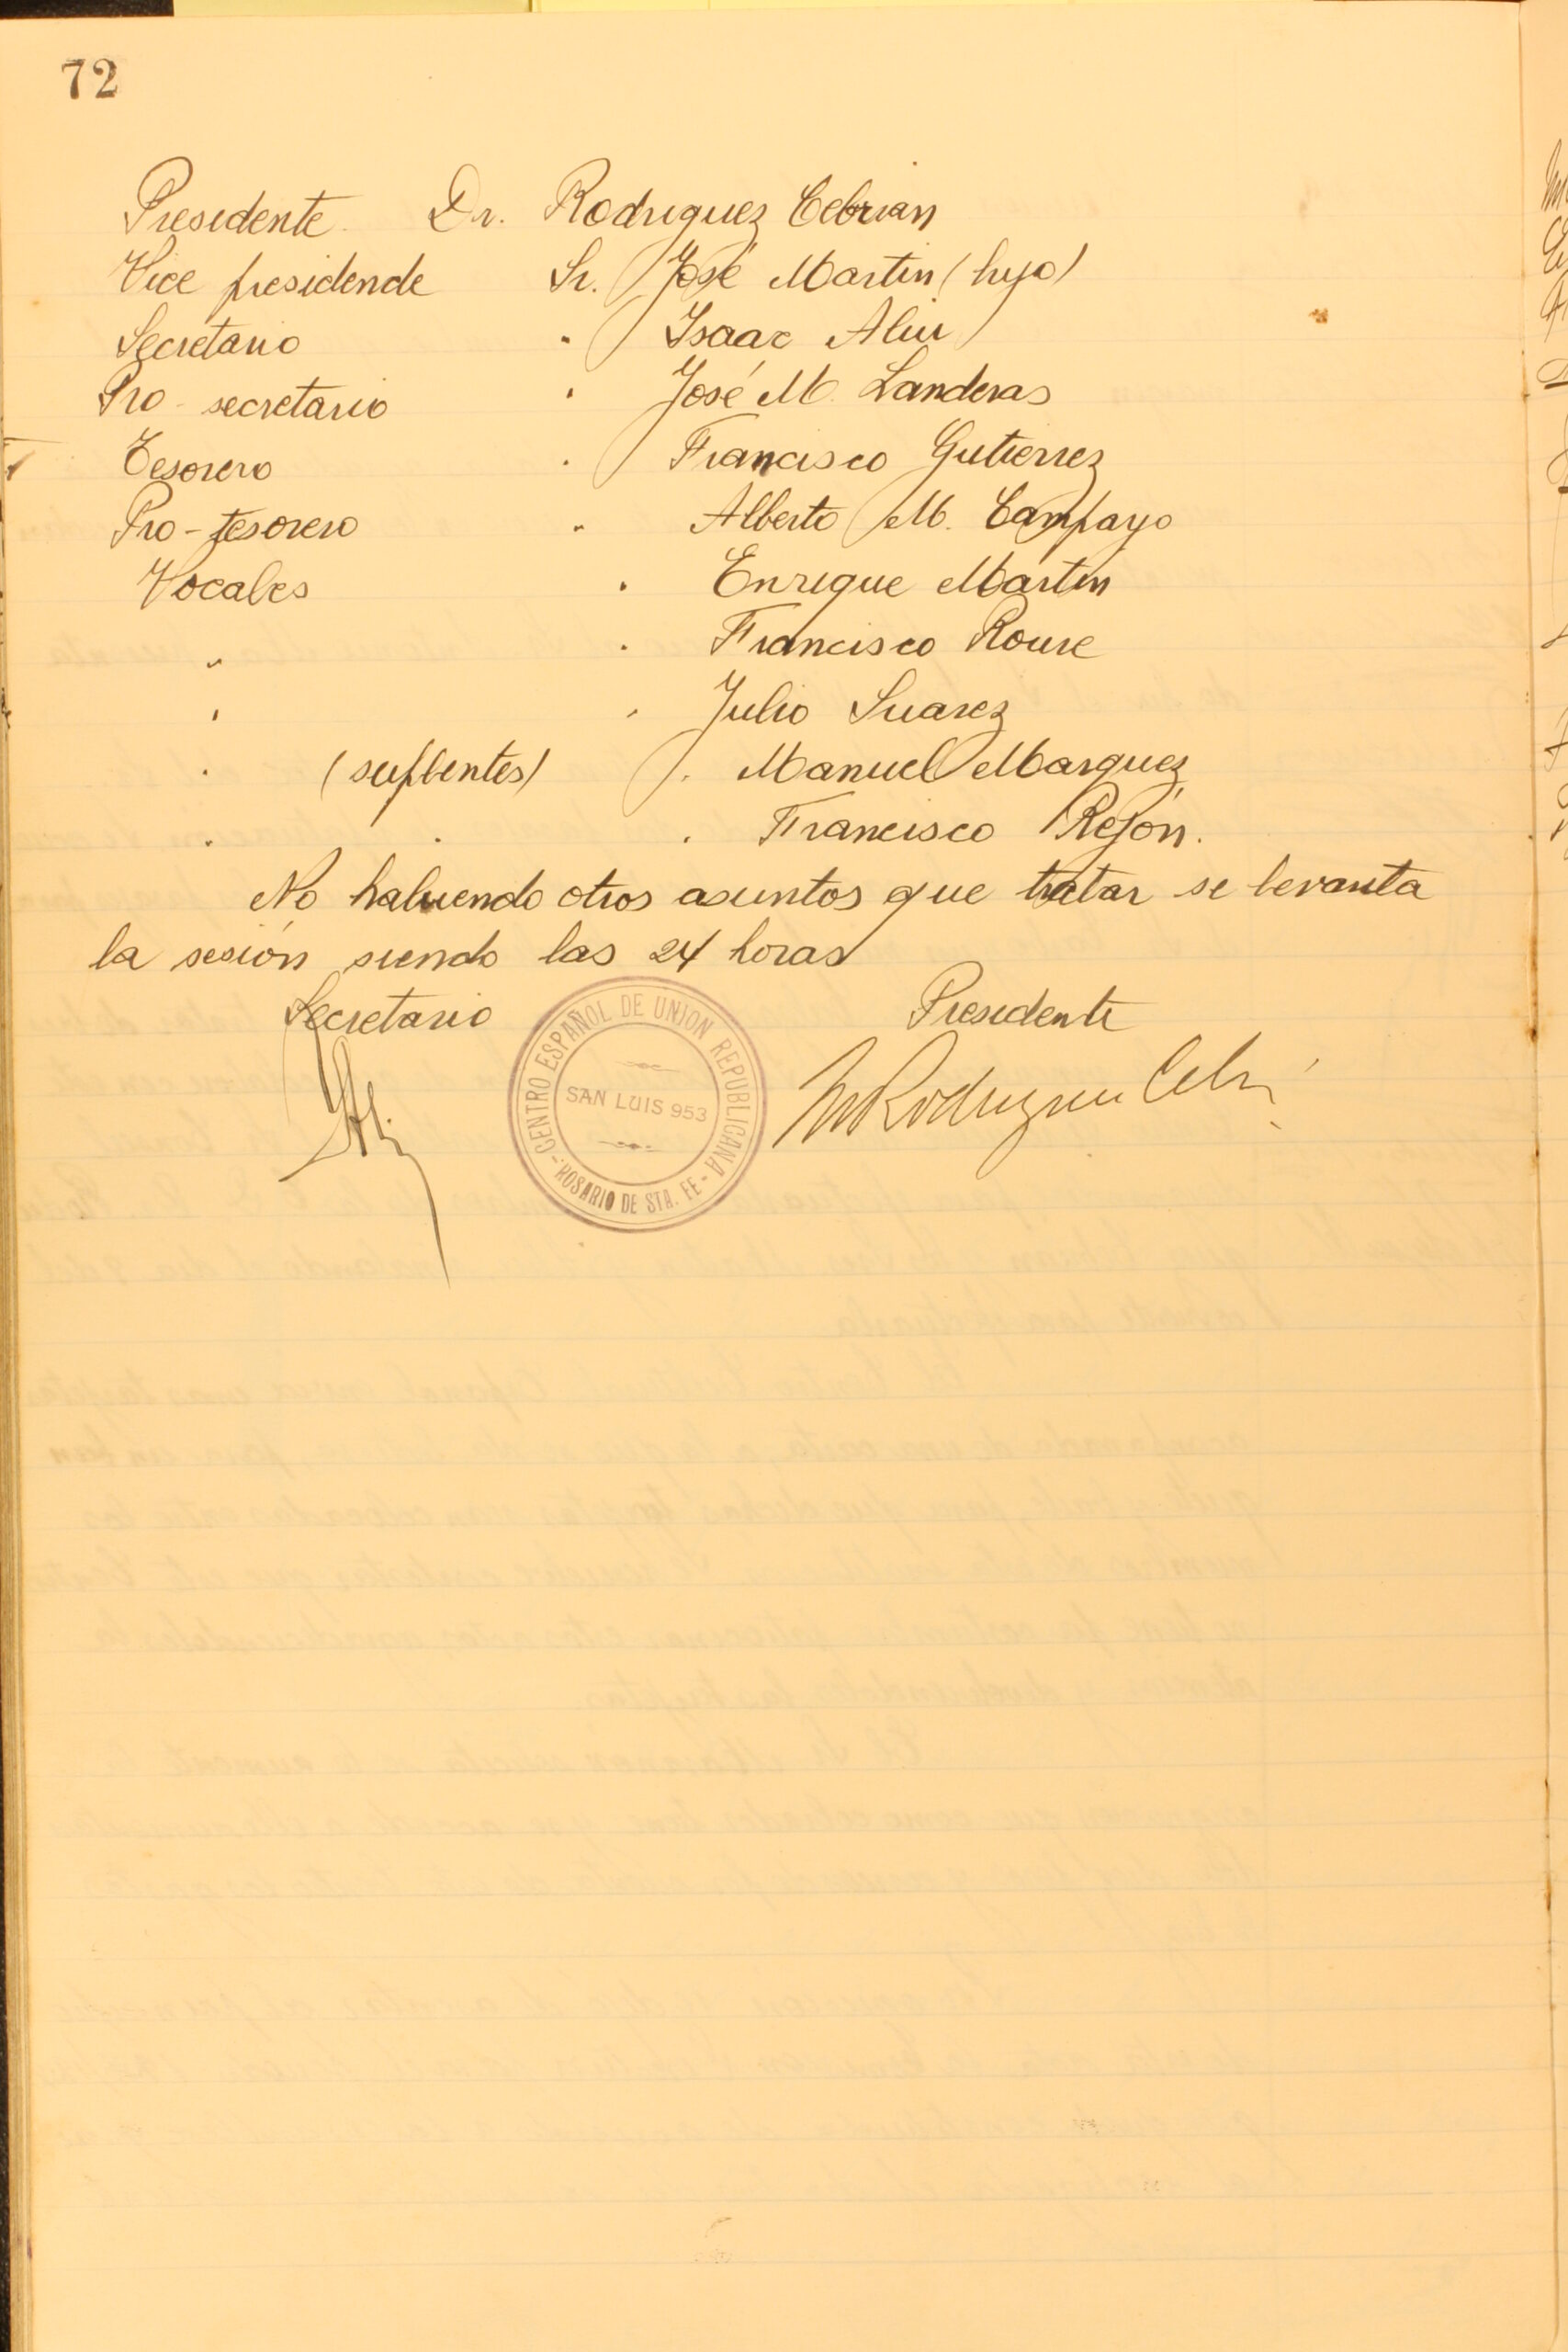 72
Presidente Dr. Rodriguez Cebrian
Vice presidende Sr. José Martin (hijo)
Secretario " Isaac Aliu
Pro-secretario " José M. Landeras
Tesorero " Francisco Gutierrez
Pro-tesorero " Alberto M. Campayo
Vocales " Enrique Martin
" " Francisco Roure
" " Julio Suarez
" (suplentes) " Manuel Marquez
" " " Francisco Rejón.
No habiendo otros asuntos que tratar se levanta
la sesión siendo las 24 horas
Secretario Presidente
CENTRO ESPAÑOL DE UNION REPUBLICANA
SAN LUIS 953
-ROSARIO DE STA. FE-
MRodriguez Cebri